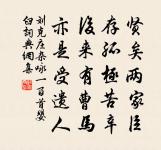 賢矣两家臣
存孤極苦辛
後来有曹馬
亦是受遗人
刘克庄杂咏一百首婴
臼词典网集